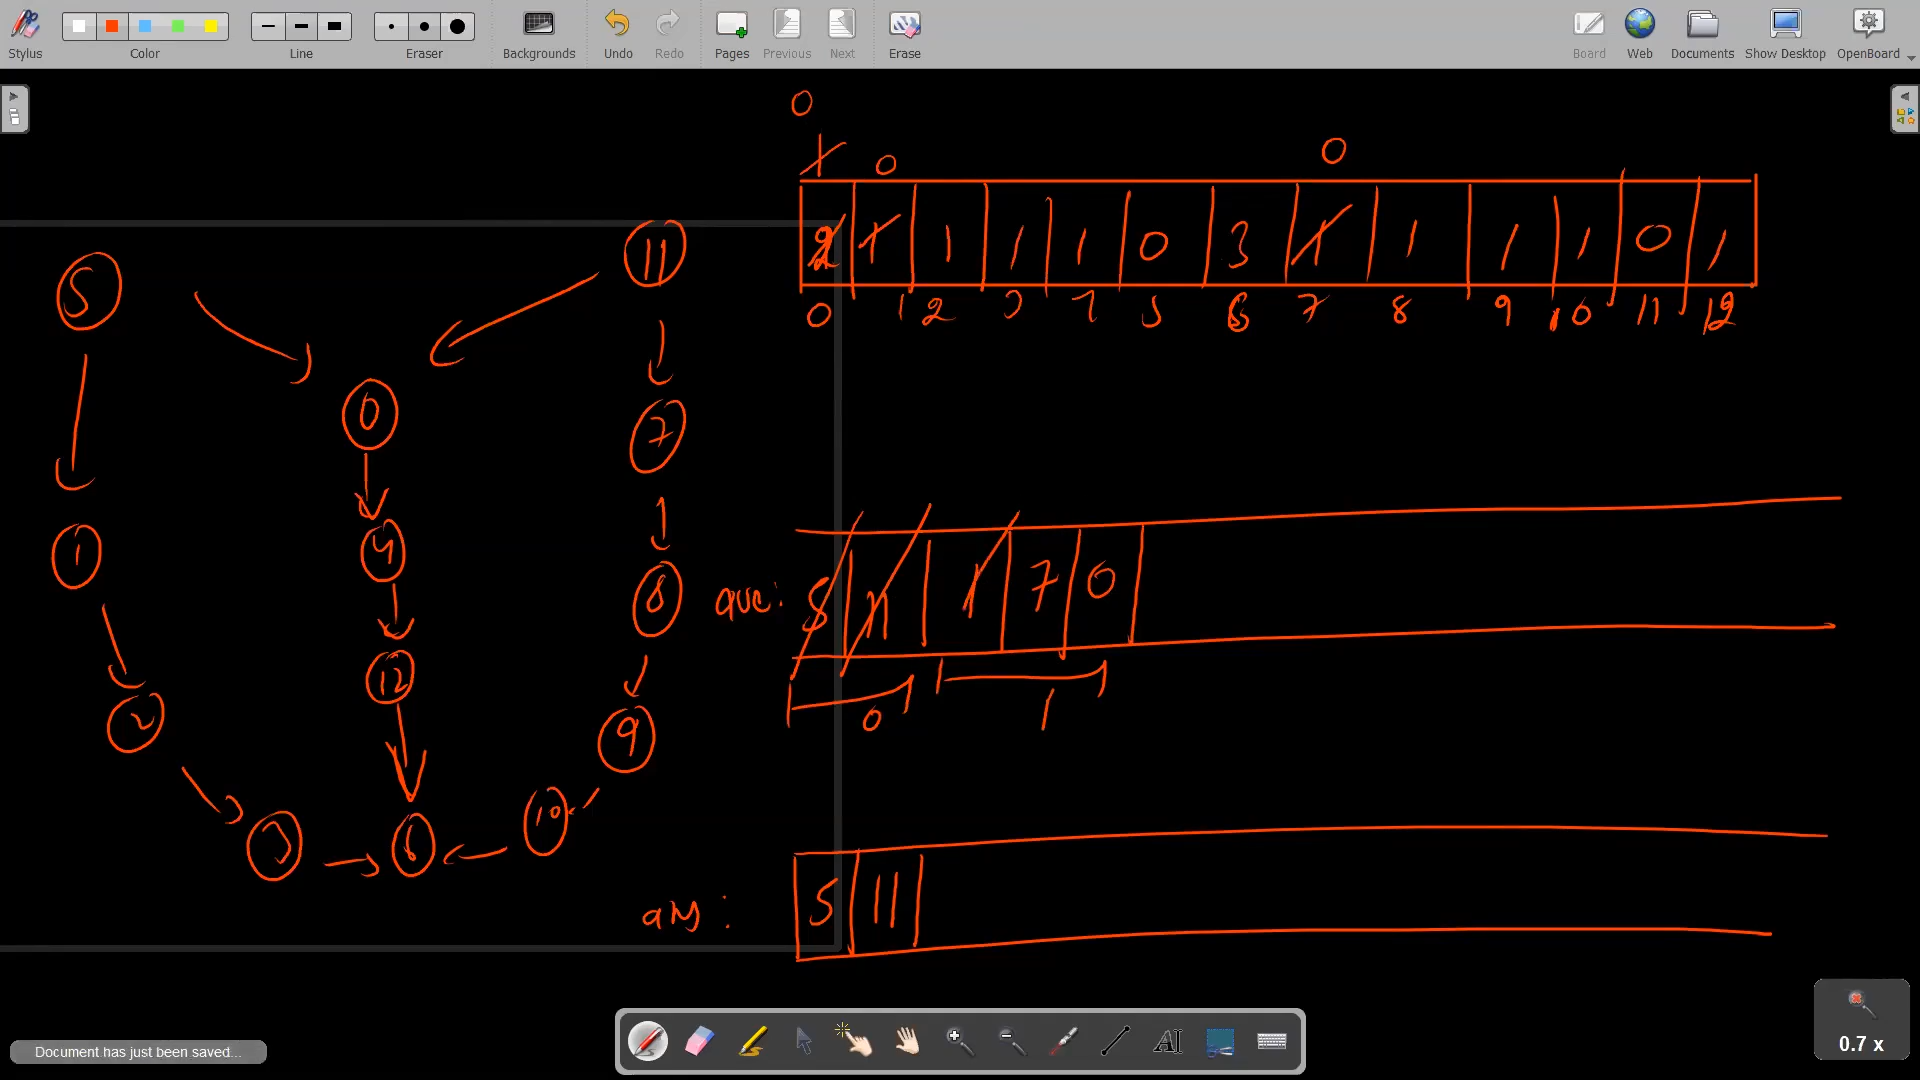 Stylus Color Line Eraser Backgrounds Undo Redo Pages Previous Next Erase Board Web Documents Show Desktop OpenBoard
0
1 0 0
2 1 1 1 1 0 3 1 1 1 1 0 1
0 1 2 3 4 5 6 7 8 9 10 11 12
5 11
0
7
1 4
8
12
2 9
3 6 10
que: 5 11 1 7 0
0 1
ans: 5 11
Document has just been saved...
0.7 x